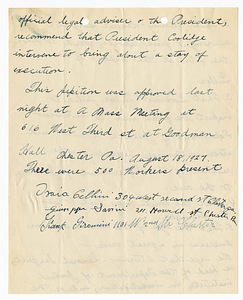 official legal adviser o the President,
recommend that President Coolidge
intervene to bring about a stay of
execution.
This petition was approved last
night at a Mass Meeting at
610 West Third st at Goodman
Hall Chester Pa. August 18, 1927.
There were 500 Workers present
Cellini 30 west second st
Giuseppe 211 Howell st Chester Pa
Frank 1101 W